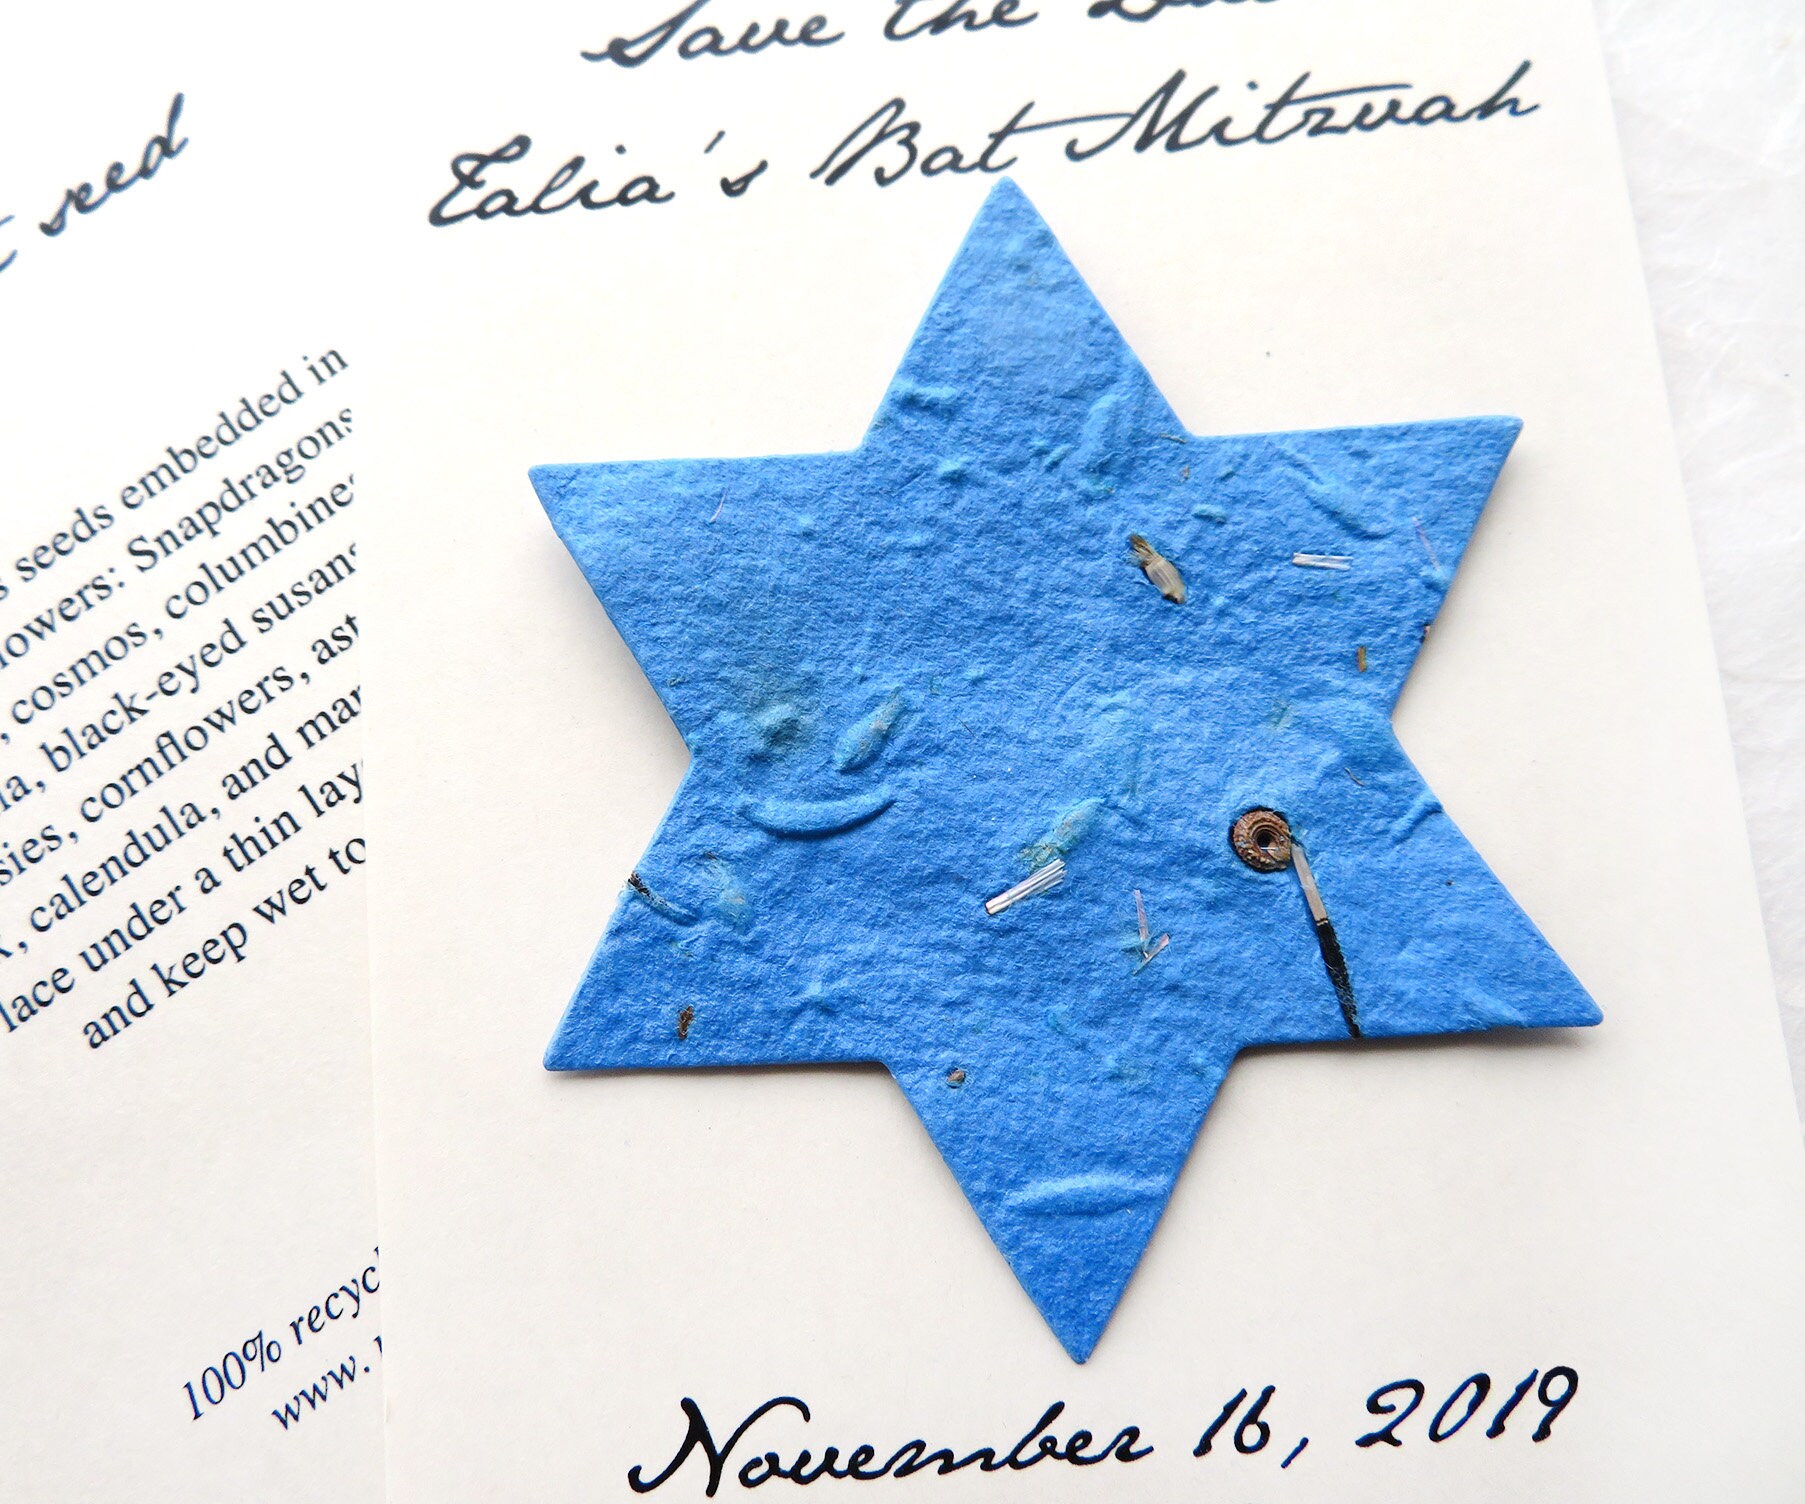 seed
seeds embedded in
Snapdragons
cosmos, columbine
black-eyed susans
cornflowers,
calendula, and
under a thin
and keep wet to
100%
www.
Save the
Talia's Bat Mitzvah
November 16, 2019